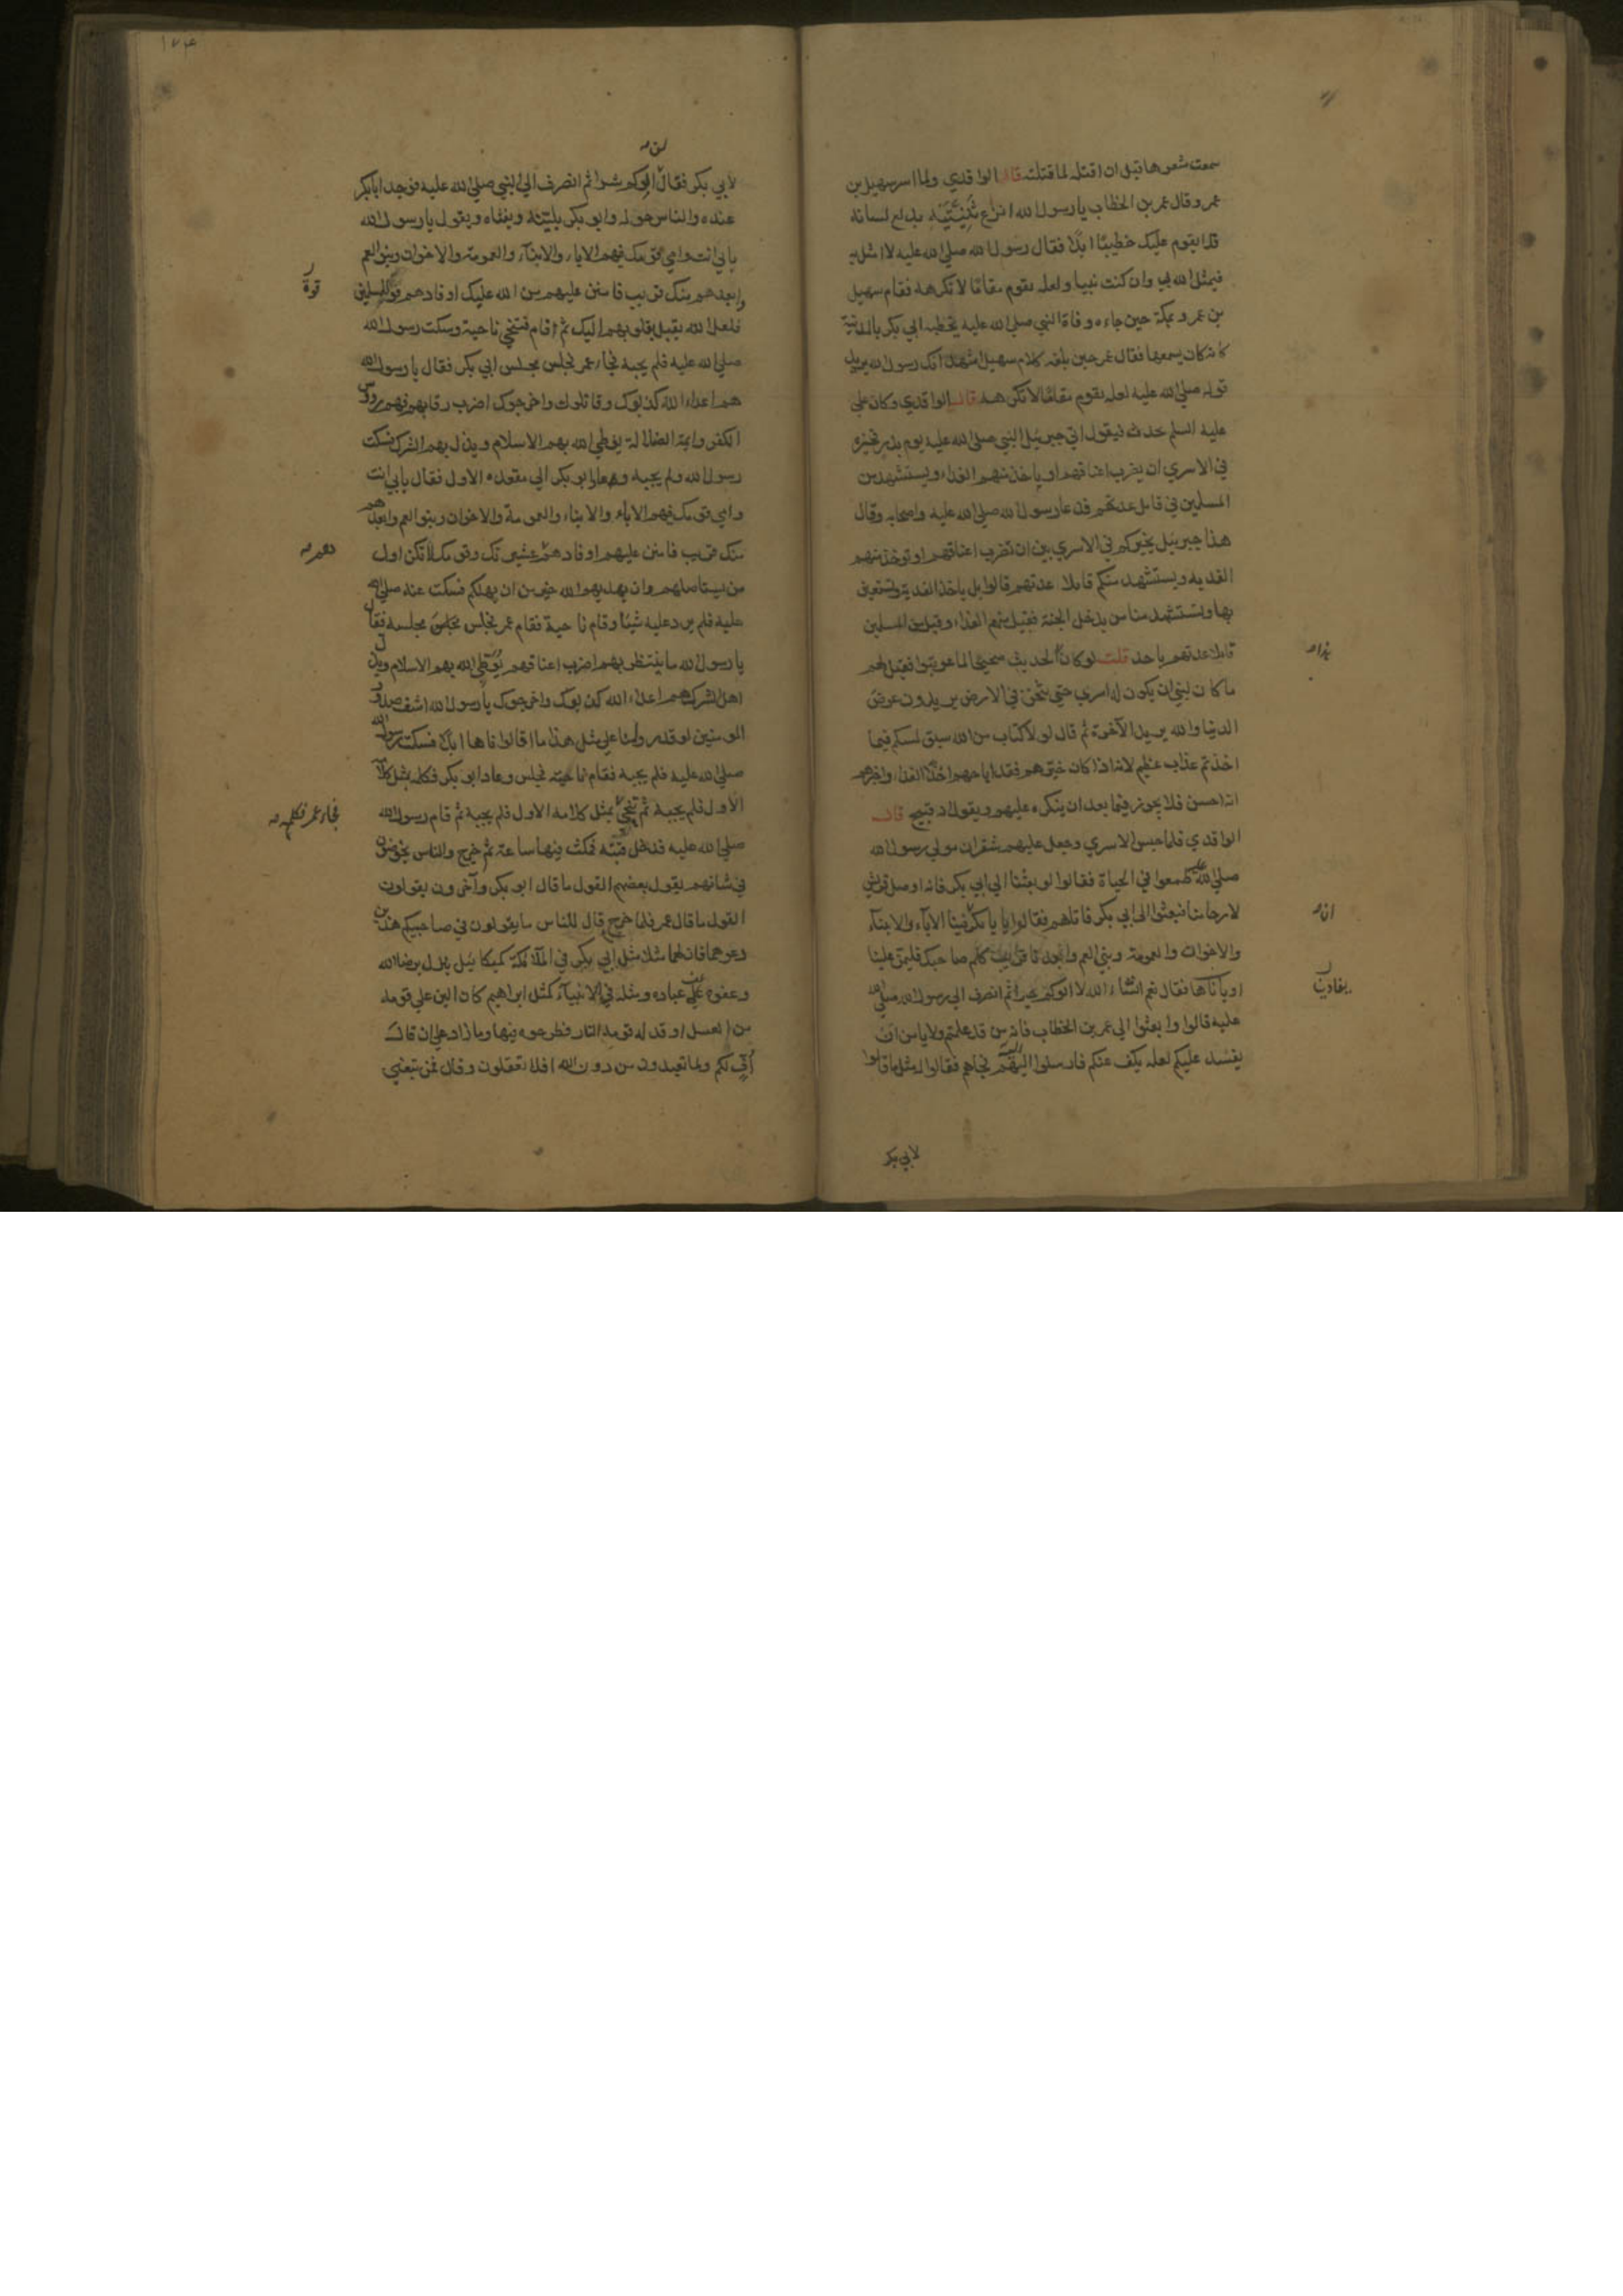 سمعت شعرها قبل ان اقتله لما قتلته قال الواقدي ولما اسر سهيل بن
عمرو قال عمر بن الخطاب يا رسول الله انزع ثنيتيه يدلع لسانه
فلا يقوم عليك خطيبا ابدا فقال رسول الله صلي الله عليه لا امثل به
فيمثل الله بي وان كنت نبيا ولعله يقوم مقاما لا تكرهه فقام سهيل
بن عمرو بمكة حين جاءه وفاة النبي صلي الله عليه بخطبة ابي بكر بالمدينة
كانه كان يسمعها فقال عمر حين بلغه كلام سهيل اشهد انك رسول الله يريد
قوله صلي الله عليه لعله يقوم مقاما لا تكرهه قال الواقدي وكان علي
عليه السلم يحدث فيقول اتي جبرئيل النبي صلي الله عليه يوم بدر فخيره
في الاسري ان يضرب اعناقهم او ياخذ منهم الفداء ويستشهد من
المسلمين في قابل عدتهم فدعا رسول الله صلي الله عليه واصحابه وقال
هذا جبرئيل يخيركم في الاسري بين ان تضرب اعناقهم او توخذ منهم
الفدية ويستشهد منكم قابلا عدتهم قالوا بل ياخذ الفدية ونستعين
بها ويستشهد منا من يدخل الجنة فقبل منهم الفداء وقبل من المسلمين
قابلا عدتهم باحد قلت لو كان الحديث صحيحا لما عوتبوا فقيل لهم
بذا
ما كان لنبي ان يكون له اسري حتي يثخن في الارض يريدون عرض
الدنيا والله يريد الآخرة ثم قال لولا كتاب من الله سبق لمسكم فيما
اخذتم عذاب عظيم لانه اذا كان خيرهم فقد اباحهم اخذ الفداء واخبرهم
انه احسن فلا يجوز فيما بعد ان ينكره عليهم ويقول انه قبيح قال
الواقدي فلما حبس الاسري وجعل عليهم شقران مولي رسول الله
صلي الله عليه طمعوا في الحياة فقالوا لو بعثنا الي ابي بكر فانه اوصل قريش
لارحامنا فبعثوا الي ابي بكر فاتاهم فقالوا يا ابا بكر ان فينا الآباء والابناء
انه
والاخوان والعمومة وبني العم وابعدنا قريب كلم صاحبك فليمن علينا
او يفادنا فقال نعم انشاء الله لا الوكم خيرا ثم انصرف الي رسول الله صلي الله
يفادينا
عليه قالوا وابعثوا الي عمر بن الخطاب فانه من قد علمتم ولا يامن ان
يفسد عليكم لعله يكف عنكم فارسلوا اليه فجاءهم فقالوا له مثل ما قالوا
لابي بكر
١٧٤
لن
لابي بكر فقال لا الوكم شرا ثم انصرف الي النبي صلي الله عليه فوجد ابابكر
عنده والناس حوله وابو بكر يلينه ويفثاه ويقول يا رسول الله
بابي انت وامي قومك فيهم الاباء والابناء والعمومة والاخوان وبنو العم
وابعدهم منك قريب فامنن عليهم من الله عليك او فادهم قوة للمسلمين
قوة
فلعل الله يقبل بقلوبهم اليك ثم قام فتنحي ناحية وسكت رسول الله
صلي الله عليه فلم يجبه فجاء عمر فجلس مجلس ابي بكر فقال يا رسول الله
هم اعداء الله كذبوك وقاتلوك واخرجوك اضرب رقابهم فهم رؤس
الكفر وايمة الضلالة يوطي الله بهم الاسلام ويذل بهم الشرك فسكت
رسول الله ولم يجبه وعاد ابو بكر الي مقعده الاول فقال بابي انت
وامي قومك فيهم الاباء والابناء والعمومة والاخوان وبنو العم وابعدهم
منك قريب فامنن عليهم او فادهم هم عشيرتك وقومك لا تكن اول
من يستاصلهم وان يهديهم الله خير من ان يهلكهم فسكت عنه صلي الله
عليه فلم يرد عليه شيئا وقام ناحية فقام عمر فجلس مجلسه فقال
يا رسول الله ما ينتظر بهم اضرب اعناقهم يوطي الله بهم الاسلام ويذل
اهل الشرك هم اعداء الله كذبوك واخرجوك يا رسول الله اشف صدور
المومنين لو قدروا منا علي مثل هذا ما اقالوناها ابدا فسكت رسول الله
صلي الله عليه فلم يجبه فقام ناحية فجلس وعاد ابو بكر فكلمه بمثل كلامه
الاول فلم يجبه ثم تنحي بمثل كلامه الاول فلم يجبه ثم قام رسول الله
فجاء عمر فكلمه
صلي الله عليه فدخل قبته فمكث فيها ساعة ثم خرج والناس يخوضون
في شانهم يقول بعضهم القول ما قال ابو بكر وآخرون يقولون
القول ما قال عمر فلما خرج قال للناس ما يقولون في صاحبيكم هذين
دعوهما فان لهما مثلا مثل ابي بكر في الملائكة كميكائيل ينزل برضا الله
وعفوه علي عباده ومثله في الانبياء كمثل ابراهيم كان الين علي قومه
من العسل اوقد له قومه النار فطرحوه فيها وما زاد علي ان قال
اف لكم ولما تعبدون من دون الله افلا تعقلون وقال فمن تبعني